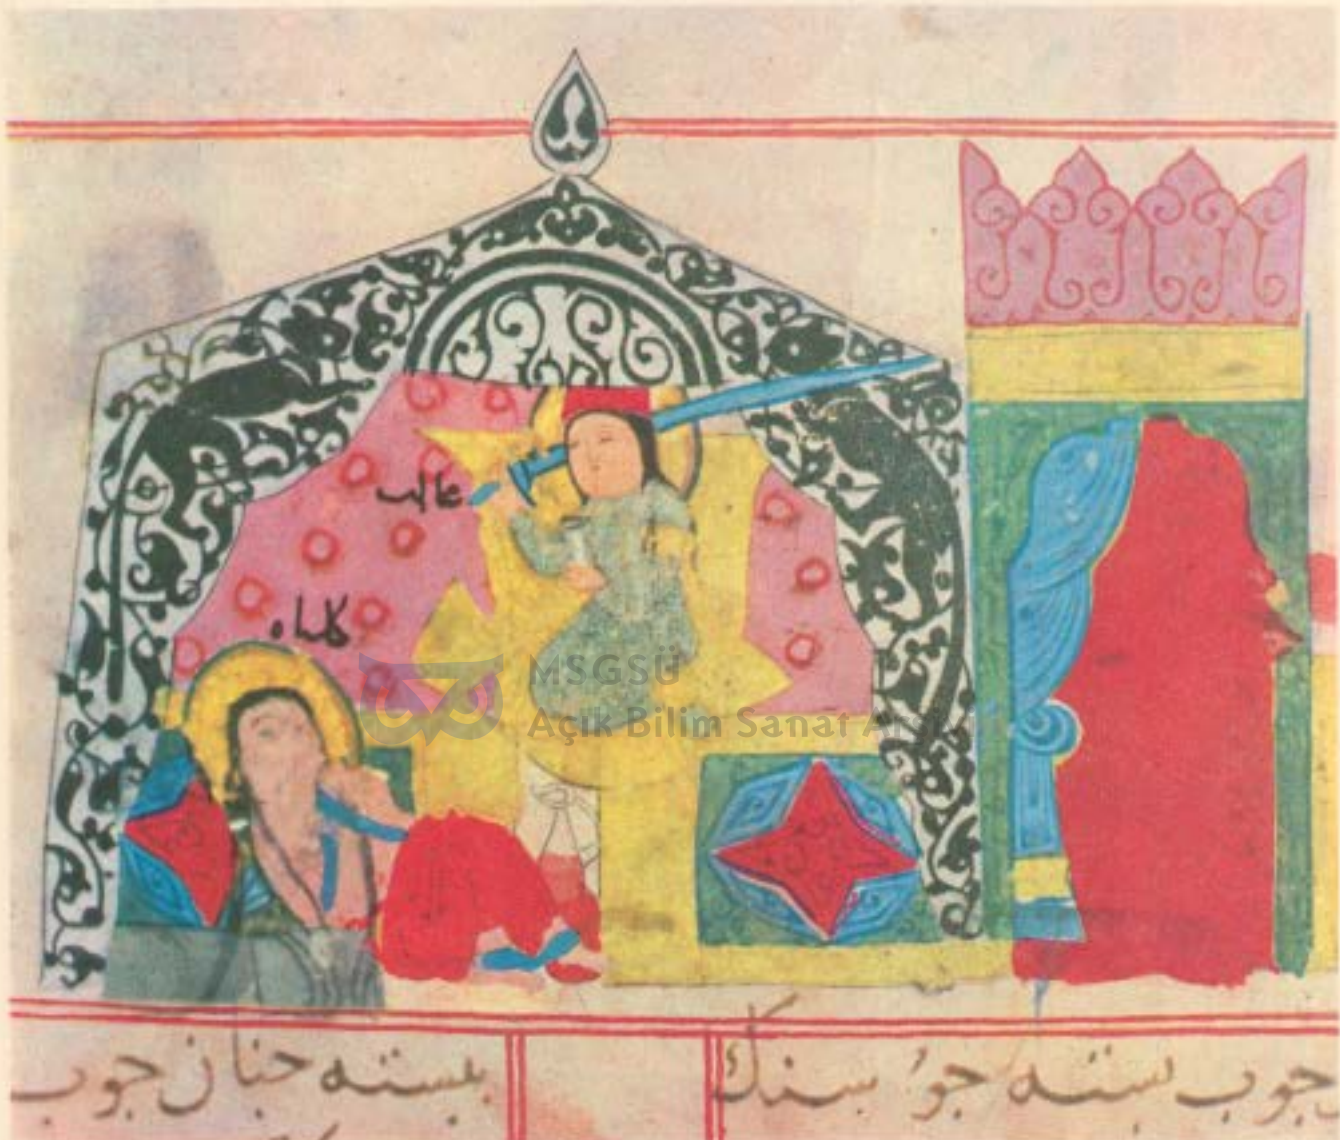 عالب
كلساه
MSGSÜ
Açık Bilim Sanat Ar
جوب بسته جو سنك
ببسته جنان جوب